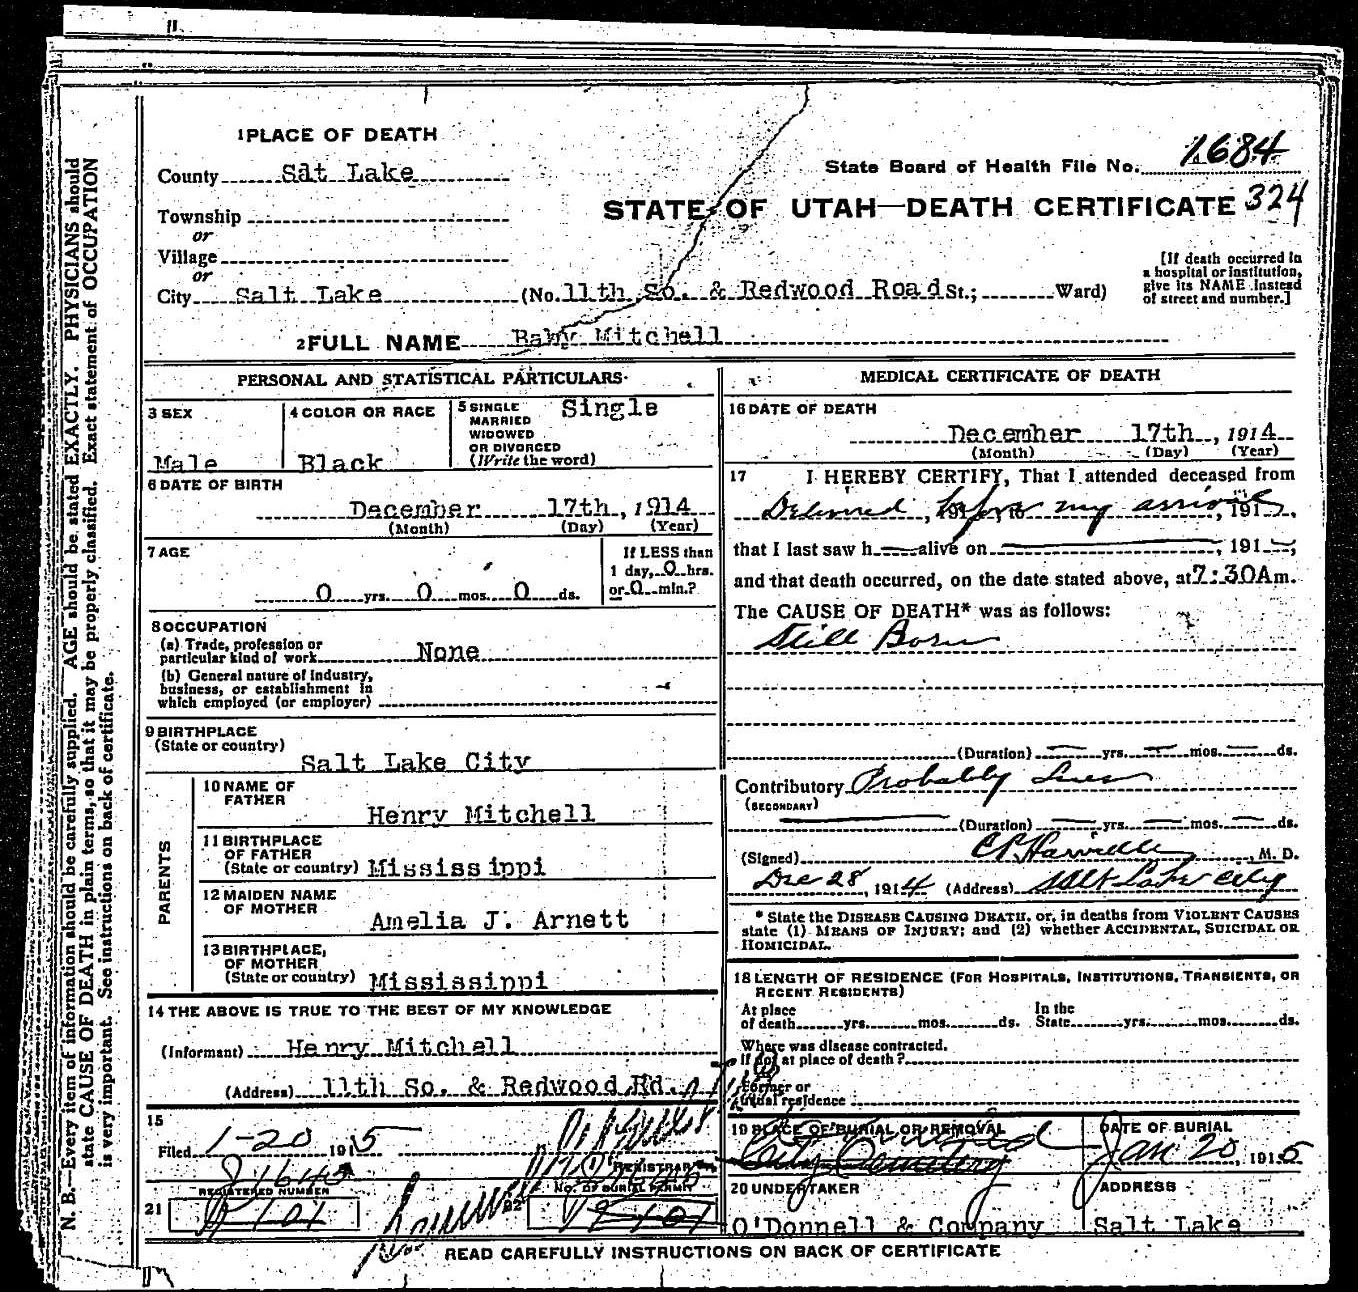 N. B.—Every item of information should be carefully supplied. AGE should be stated EXACTLY. PHYSICIANS should
state CAUSE OF DEATH in plain terms, so that it may be properly classified. Exact statement of OCCUPATION
is very important. See instructions on back of certificate.
1 PLACE OF DEATH
State Board of Health File No. 1684
County Salt Lake
STATE OF UTAH—DEATH CERTIFICATE 324
Township
or
Village
or
City Salt Lake (No. 11th So. & Redwood Road St.; Ward)
[If death occurred in
a hospital or institution,
give its NAME instead
of street and number.]
2 FULL NAME Baby Mitchell
PERSONAL AND STATISTICAL PARTICULARS
3 SEX Male
4 COLOR OR RACE Black
5 SINGLE Single
MARRIED
WIDOWED
OR DIVORCED
(Write the word)
6 DATE OF BIRTH
December 17th, 1914
(Month) (Day) (Year)
7 AGE
0 yrs. 0 mos. 0 ds.
If LESS than
1 day, 0 hrs.
or 0 min.?
8 OCCUPATION
(a) Trade, profession or
particular kind of work None
(b) General nature of industry,
business, or establishment in
which employed (or employer)
9 BIRTHPLACE
(State or country)
Salt Lake City
PARENTS
10 NAME OF
FATHER
Henry Mitchell
11 BIRTHPLACE
OF FATHER
(State or country) Mississippi
12 MAIDEN NAME
OF MOTHER
Amelia J. Arnett
13 BIRTHPLACE,
OF MOTHER
(State or country) Mississippi
14 THE ABOVE IS TRUE TO THE BEST OF MY KNOWLEDGE
(Informant) Henry Mitchell
(Address) 11th So. & Redwood Rd.
15
Filed 1-20 1915
REGISTRAR
REGISTERED NUMBER
NO. OF BURIAL PERMIT
21
22
MEDICAL CERTIFICATE OF DEATH
16 DATE OF DEATH
December 17th, 1914
(Month) (Day) (Year)
17 I HEREBY CERTIFY, That I attended deceased from
Delivered before my arrival, 191
that I last saw h alive on , 191 ,
and that death occurred, on the date stated above, at 7:30A m.
The CAUSE OF DEATH* was as follows:
Still Born
(Duration) yrs. mos. ds.
Contributory Probably
(SECONDARY)
(Duration) yrs. mos. ds.
(Signed) M. D.
Dec 28, 1914 (Address) Salt Lake City
* State the DISEASE CAUSING DEATH, or, in deaths from VIOLENT CAUSES
state (1) MEANS OF INJURY; and (2) whether ACCIDENTAL, SUICIDAL OR
HOMICIDAL.
18 LENGTH OF RESIDENCE (FOR HOSPITALS, INSTITUTIONS, TRANSIENTS, OR
RECENT RESIDENTS)
At place
of death yrs. mos. ds.
In the
State yrs. mos. ds.
Where was disease contracted.
If not at place of death?
Former or
usual residence
19 PLACE OF BURIAL OR REMOVAL
City Cemetery
DATE OF BURIAL
Jan 20, 1915
20 UNDERTAKER
O'Donnell & Company
ADDRESS
Salt Lake
READ CAREFULLY INSTRUCTIONS ON BACK OF CERTIFICATE